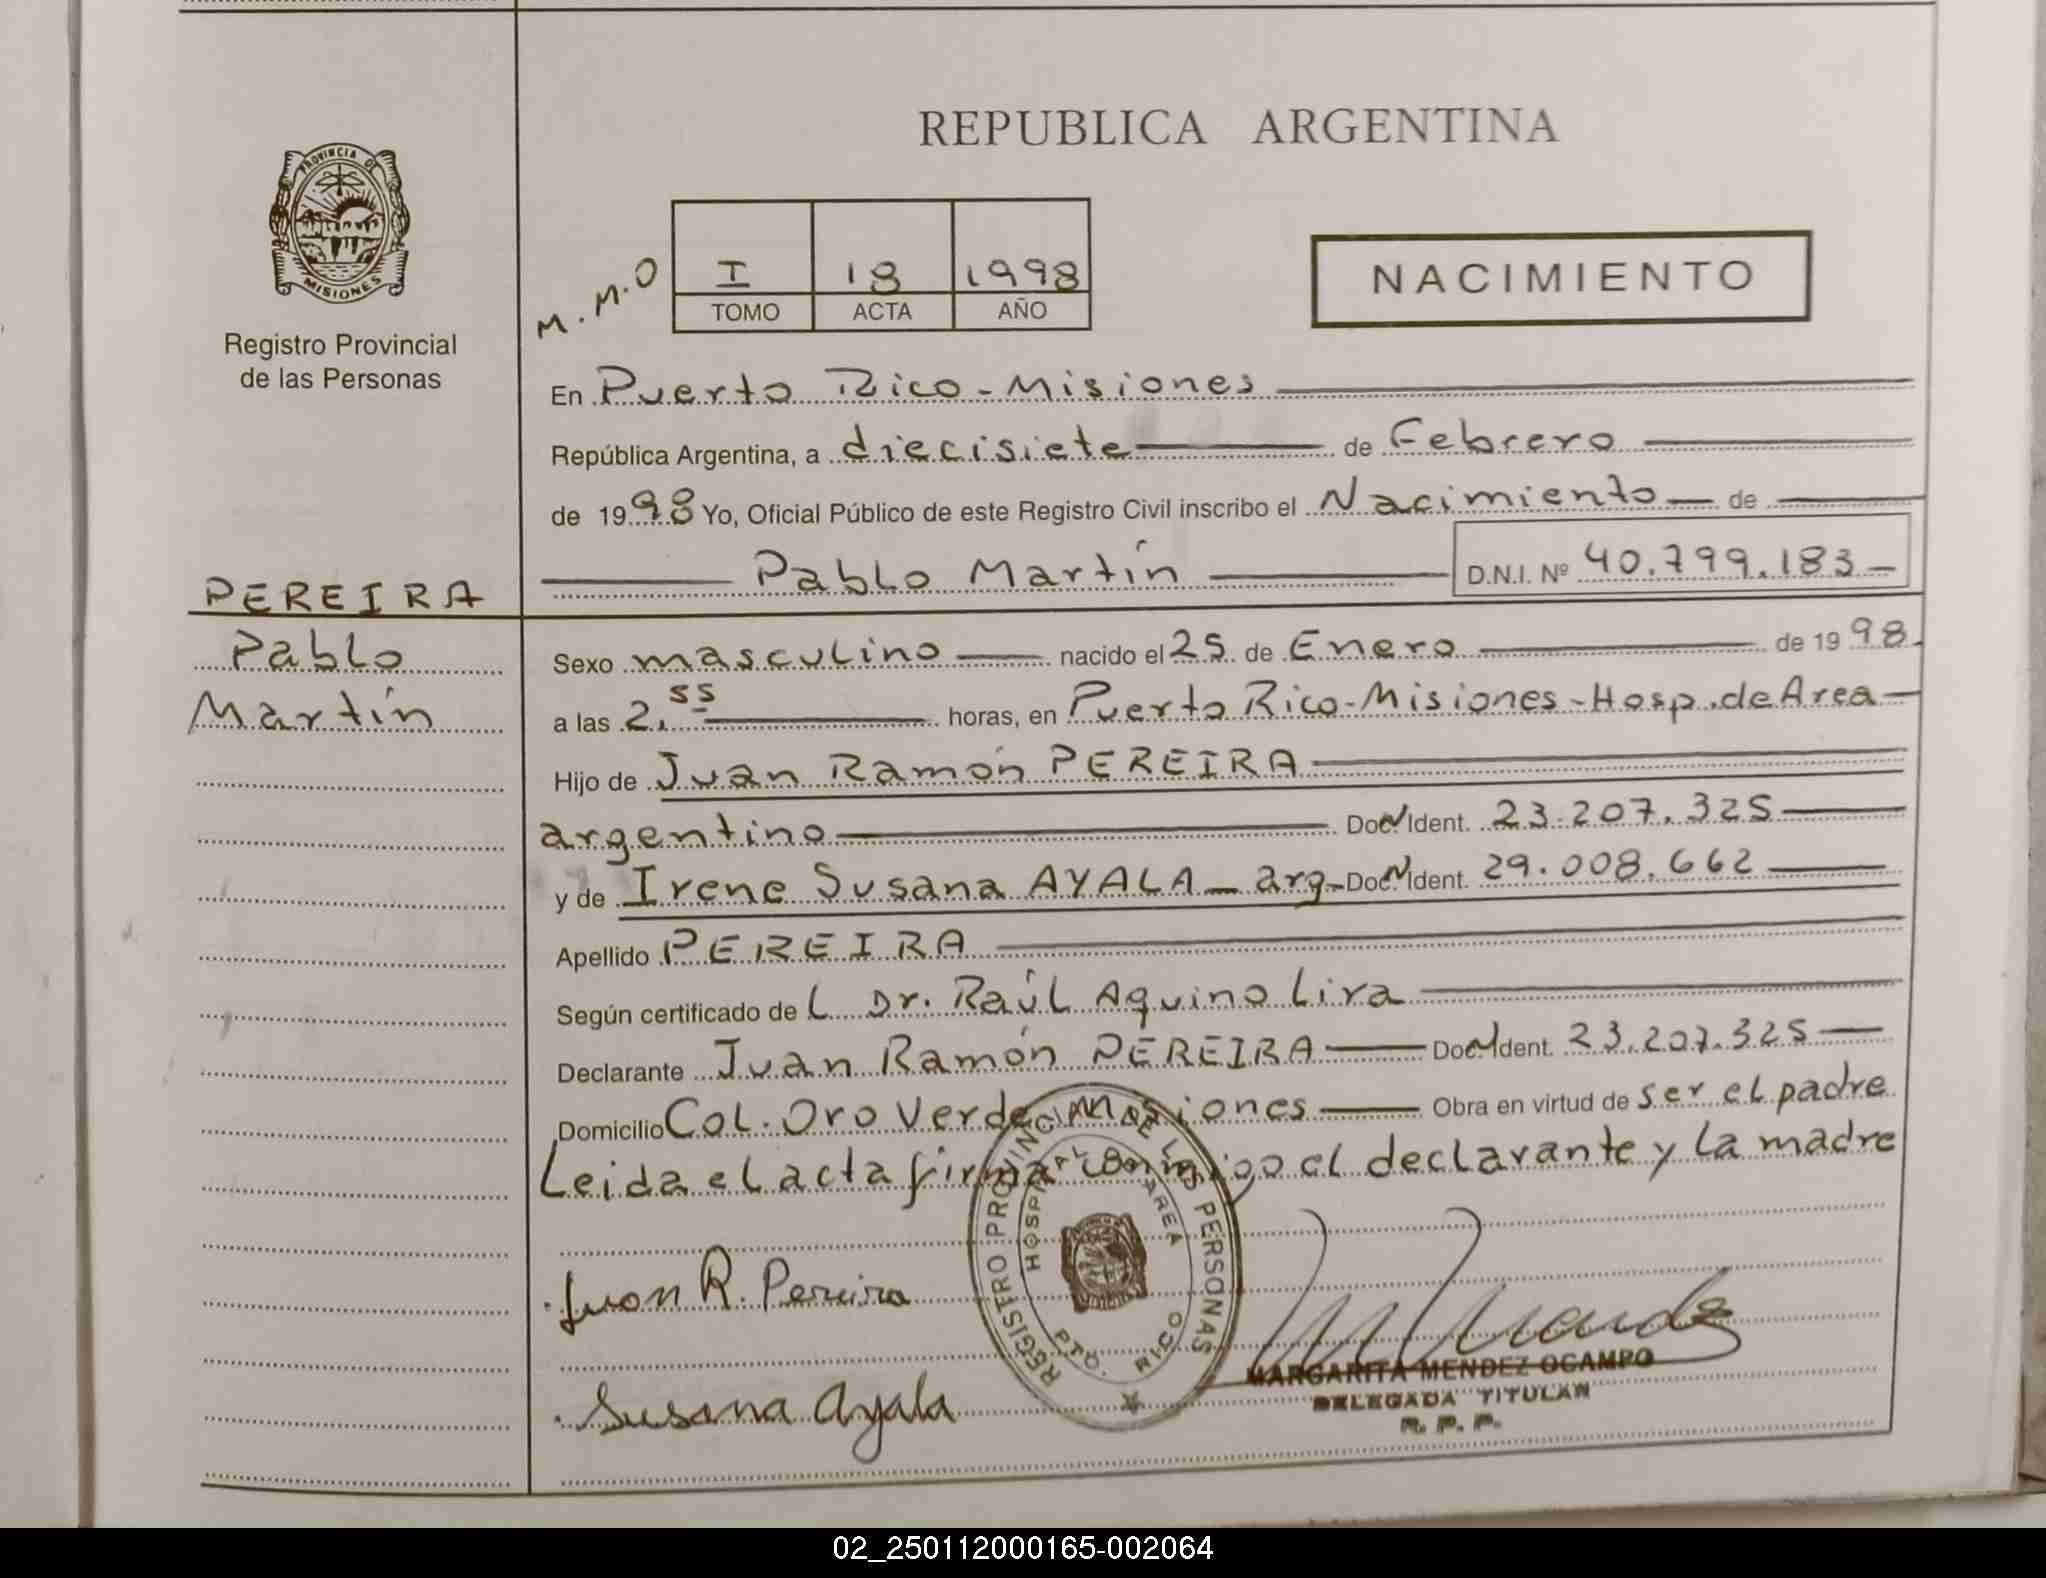 REPUBLICA ARGENTINA
PROVINCIA DE
MISIONES
Registro Provincial
de las Personas
M.M.O
I 18 1998
TOMO ACTA AÑO
NACIMIENTO
En Puerto Rico - Misiones
República Argentina, a diecisiete de Febrero
de 1998 Yo, Oficial Público de este Registro Civil inscribo el Nacimiento de
Pablo Martín D.N.I. Nº 40.799.183
PEREIRA
Pablo
Martín
Sexo masculino nacido el 25 de Enero de 1998
a las 2.55 horas, en Puerto Rico - Misiones - Hosp. de Area
Hijo de Juan Ramón PEREIRA
argentino Doc. Ident. 23.207.325
y de Irene Susana AYALA - arg - Doc. Ident. 29.008.662
Apellido PEREIRA
Según certificado de L Dr. Raúl Aquino Lira
Declarante Juan Ramón PEREIRA Doc. Ident. 23.207.325
Domicilio Col. Oro Verde Misiones Obra en virtud de ser el padre
Leida el acta firma conmigo el declarante y la madre
Juan R. Pereira
Susana Ayala
REGISTRO PROVINCIAL DE LAS PERSONAS
HOSPITAL AREA
PTO. RICO
MARGARITA MENDEZ OCAMPO
DELEGADA TITULAR
R. P. P.
02_250112000165-002064